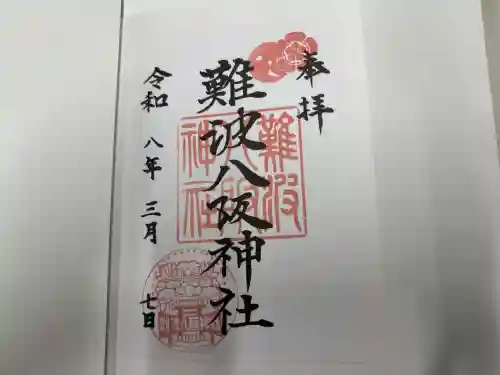 奉拝
難波八阪神社
難波
八阪
神社
令和八年三月七日